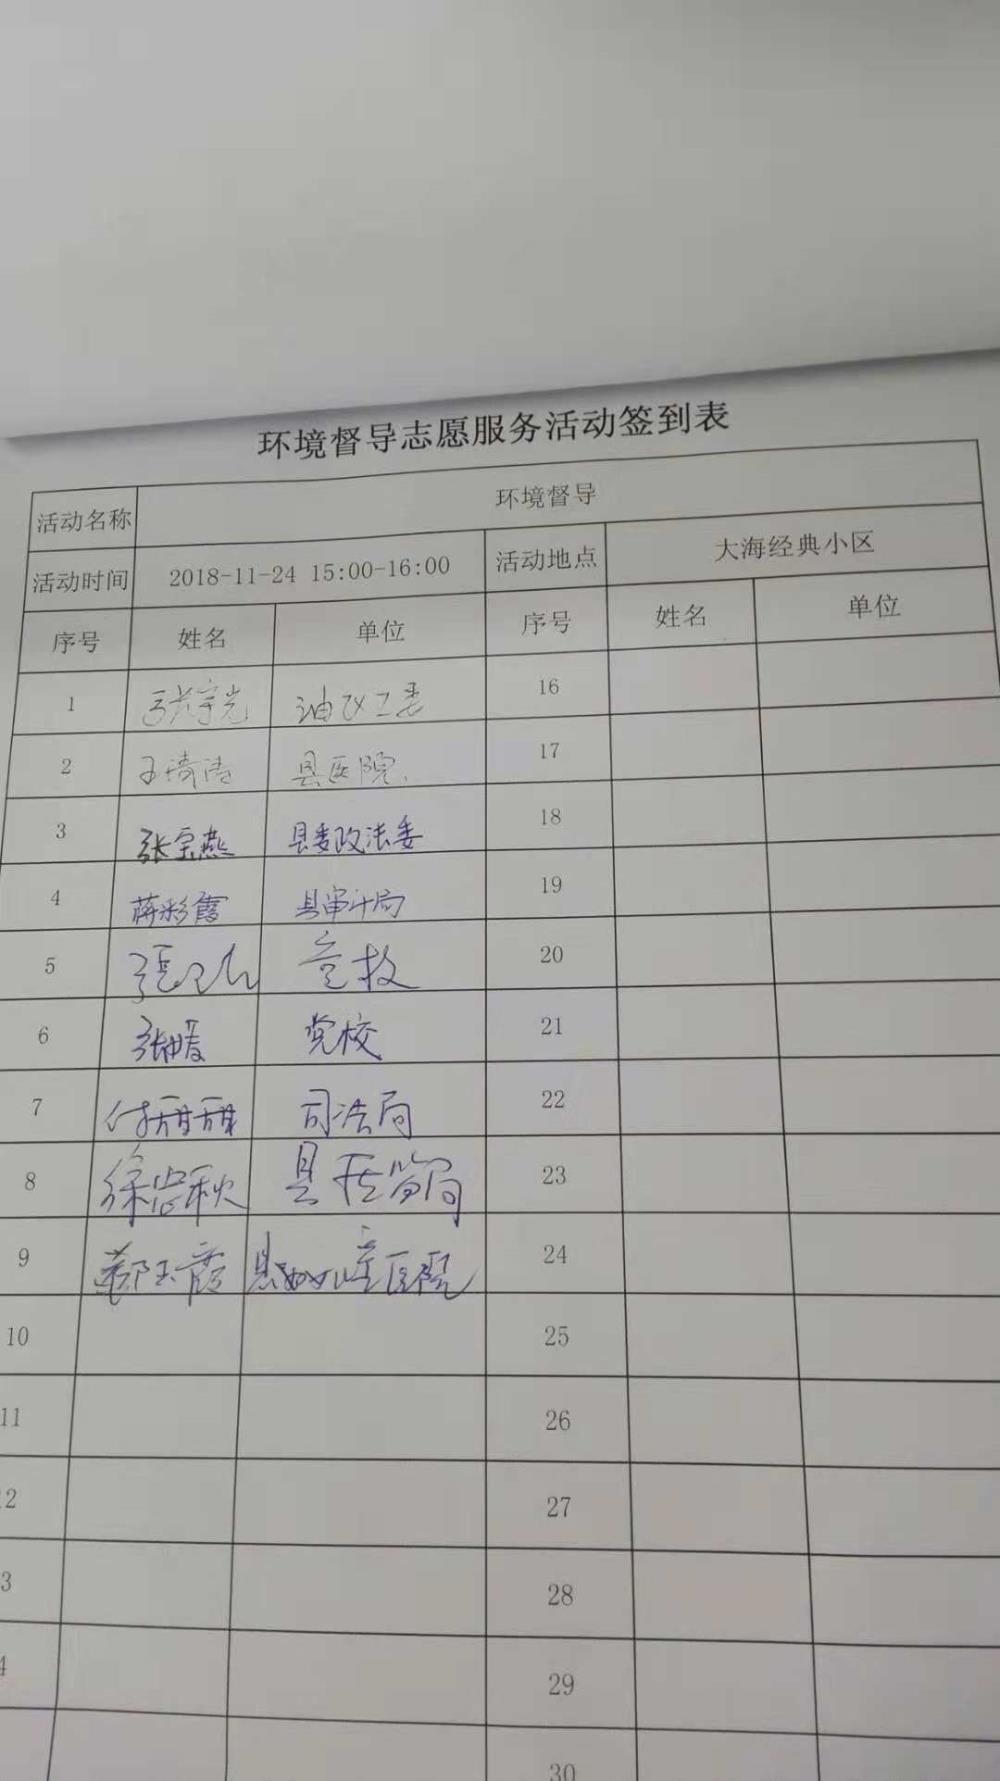 环境督导志愿服务活动签到表
活动名称 环境督导
活动时间 2018-11-24 15:00-16:00 活动地点 大海经典小区
序号 姓名 单位 序号 姓名 单位
1 张宇光 油区工委 16
2 王琦涛 县医院 17
3 张宝燕 县委政法委 18
4 蒋彩霞 县审计局 19
5 党校 20
6 张媛 党校 21
7 付甜甜 司法局 22
8 徐岩秋 县 局 23
9 郑玉霞 县妇幼 医院 24
10 25
11 26
2 27
3 28
4 29
30